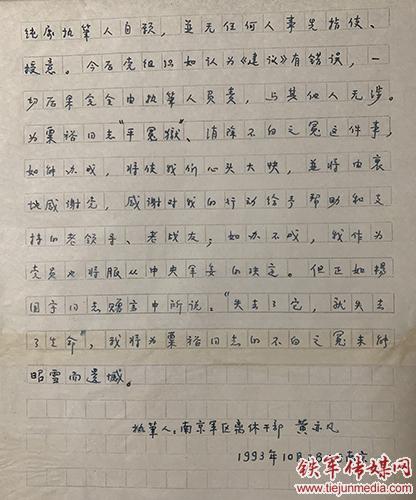 纯属执笔人自愿，並无任何人事先指使、
授意。今后党组织如认为《建议》有错误，一
切后果完全由执笔人员责，与其他人无涉。
为粟裕同志“平冤獄”、消除不白之冤这件事，
如能办成，将使我们心头大快，並将由衷
地感谢党，感谢对我的行动给予帮助和支
持的老领导、老战友；如办不成，我作为
党员也将服从中央军委的决定。但正如楊
国宇同志赠言中所说：“失去了它，就失去
了生命”，我将为粟裕同志的不白之冤未能
昭雪而遗憾。
执笔人：南京军区离休干部 黄亦凡
1993年10月 8日
铁军传媒网
www.tiejunmedia.com